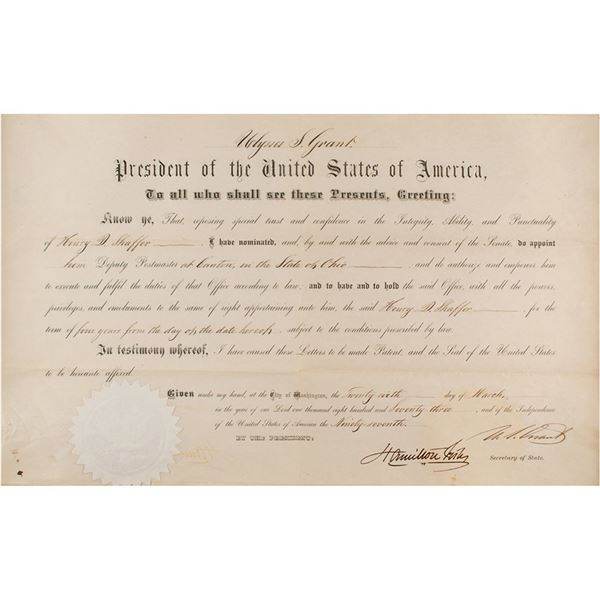 Ulysses S. Grant.
President of the United States of America,
To all who shall see these Presents, Greeting:
Know ye, That, reposing special trust and confidence in the Integrity, Ability, and Punctuality
of Henry D. Shaffer I have nominated, and, by and with the advice and consent of the Senate, do appoint
him Deputy Postmaster at Canton, in the State of Ohio, and do authorize and empower him
to execute and fulfil the duties of that Office according to law, and to have and to hold the said Office, with all the powers,
privileges, and emoluments to the same of right appertaining unto him, the said Henry D. Shaffer for the
term of four years from the day of the date hereof, subject to the conditions prescribed by law.
In testimony whereof, I have caused these Letters to be made Patent, and the Seal of the United States
to be hereunto affixed.
Given under my hand, at the City of Washington, the Twenty sixth day of March,
in the year of our Lord one thousand eight hundred and Seventy three, and of the Independence
of the United States of America the Ninety seventh.
BY THE PRESIDENT:
U.S. Grant
Hamilton Fish
Secretary of State.